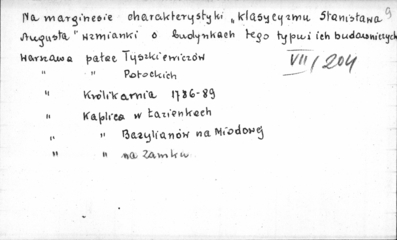 Na marginesie charakterystyki „klasycyzmu Stanisława 9
Augusta" wzmianki o budynkach tego typu i ich budowniczych
Warszawa pałac Tyszkiewiczów
" " Potockich
VII/204
" Królikarnia 1786-89
" Kaplica w Łazienkach
" " Bazylianów na Miodowej
" " na Zamku